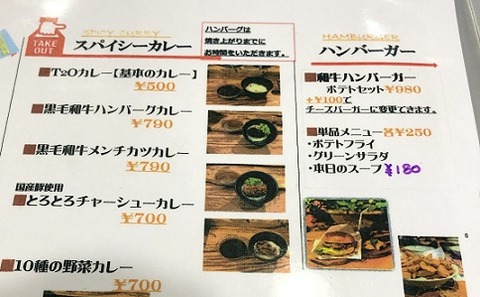 TAKE OUT
SPICY CURRY
スパイシーカレー
ハンバーグは
焼き上がりまでに
お時間をいただきます。
■T2Oカレー【基本のカレー】
¥500
■黒毛和牛ハンバーグカレー
¥790
■黒毛和牛メンチカツカレー
¥790
国産豚使用
■とろとろチャーシューカレー
¥700
■10種の野菜カレー
¥700
HAMBURGER
ハンバーガー
■和牛ハンバーガー
ポテトセット¥980
+¥100で
チーズバーガーに変更できます。
■単品メニュー各¥250
・ポテトフライ
・グリーンサラダ
・本日のスープ ¥180